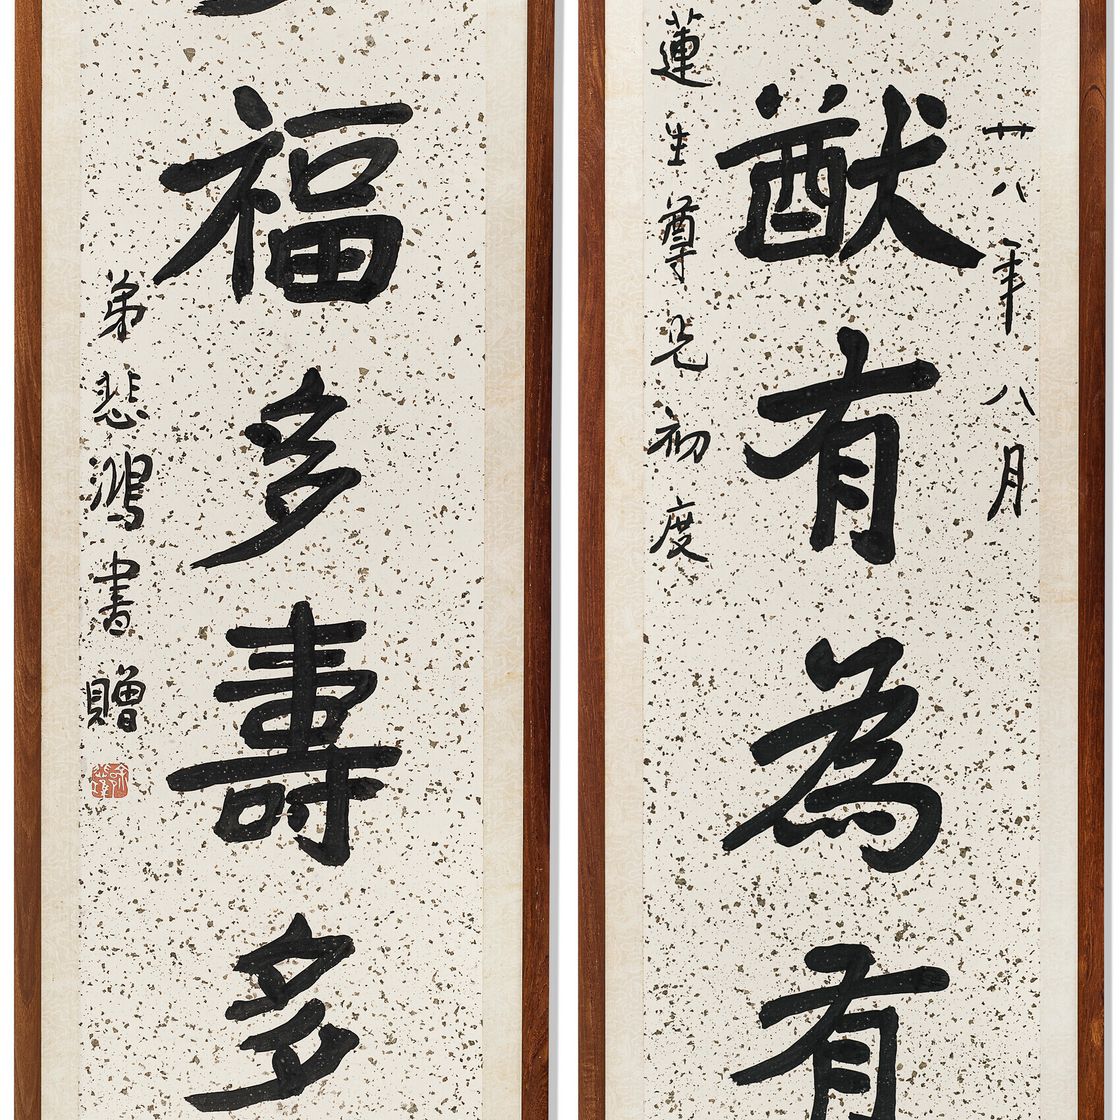 廿八年八月
猷有為有
蓮生尊兄初度
福多壽多
弟悲鴻書贈